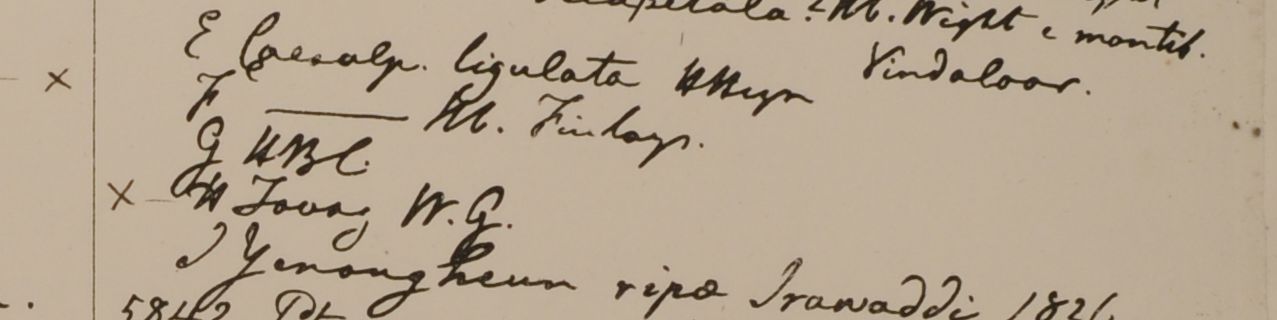 Hb. Wight e montib.
E Caesalp. ligulata HHeyn Vindaloor.
F ——— Hb. Finlays.
G HBC.
H Tavoy W.G.
I Yenangheun ripae Irawaddi 1826
5842